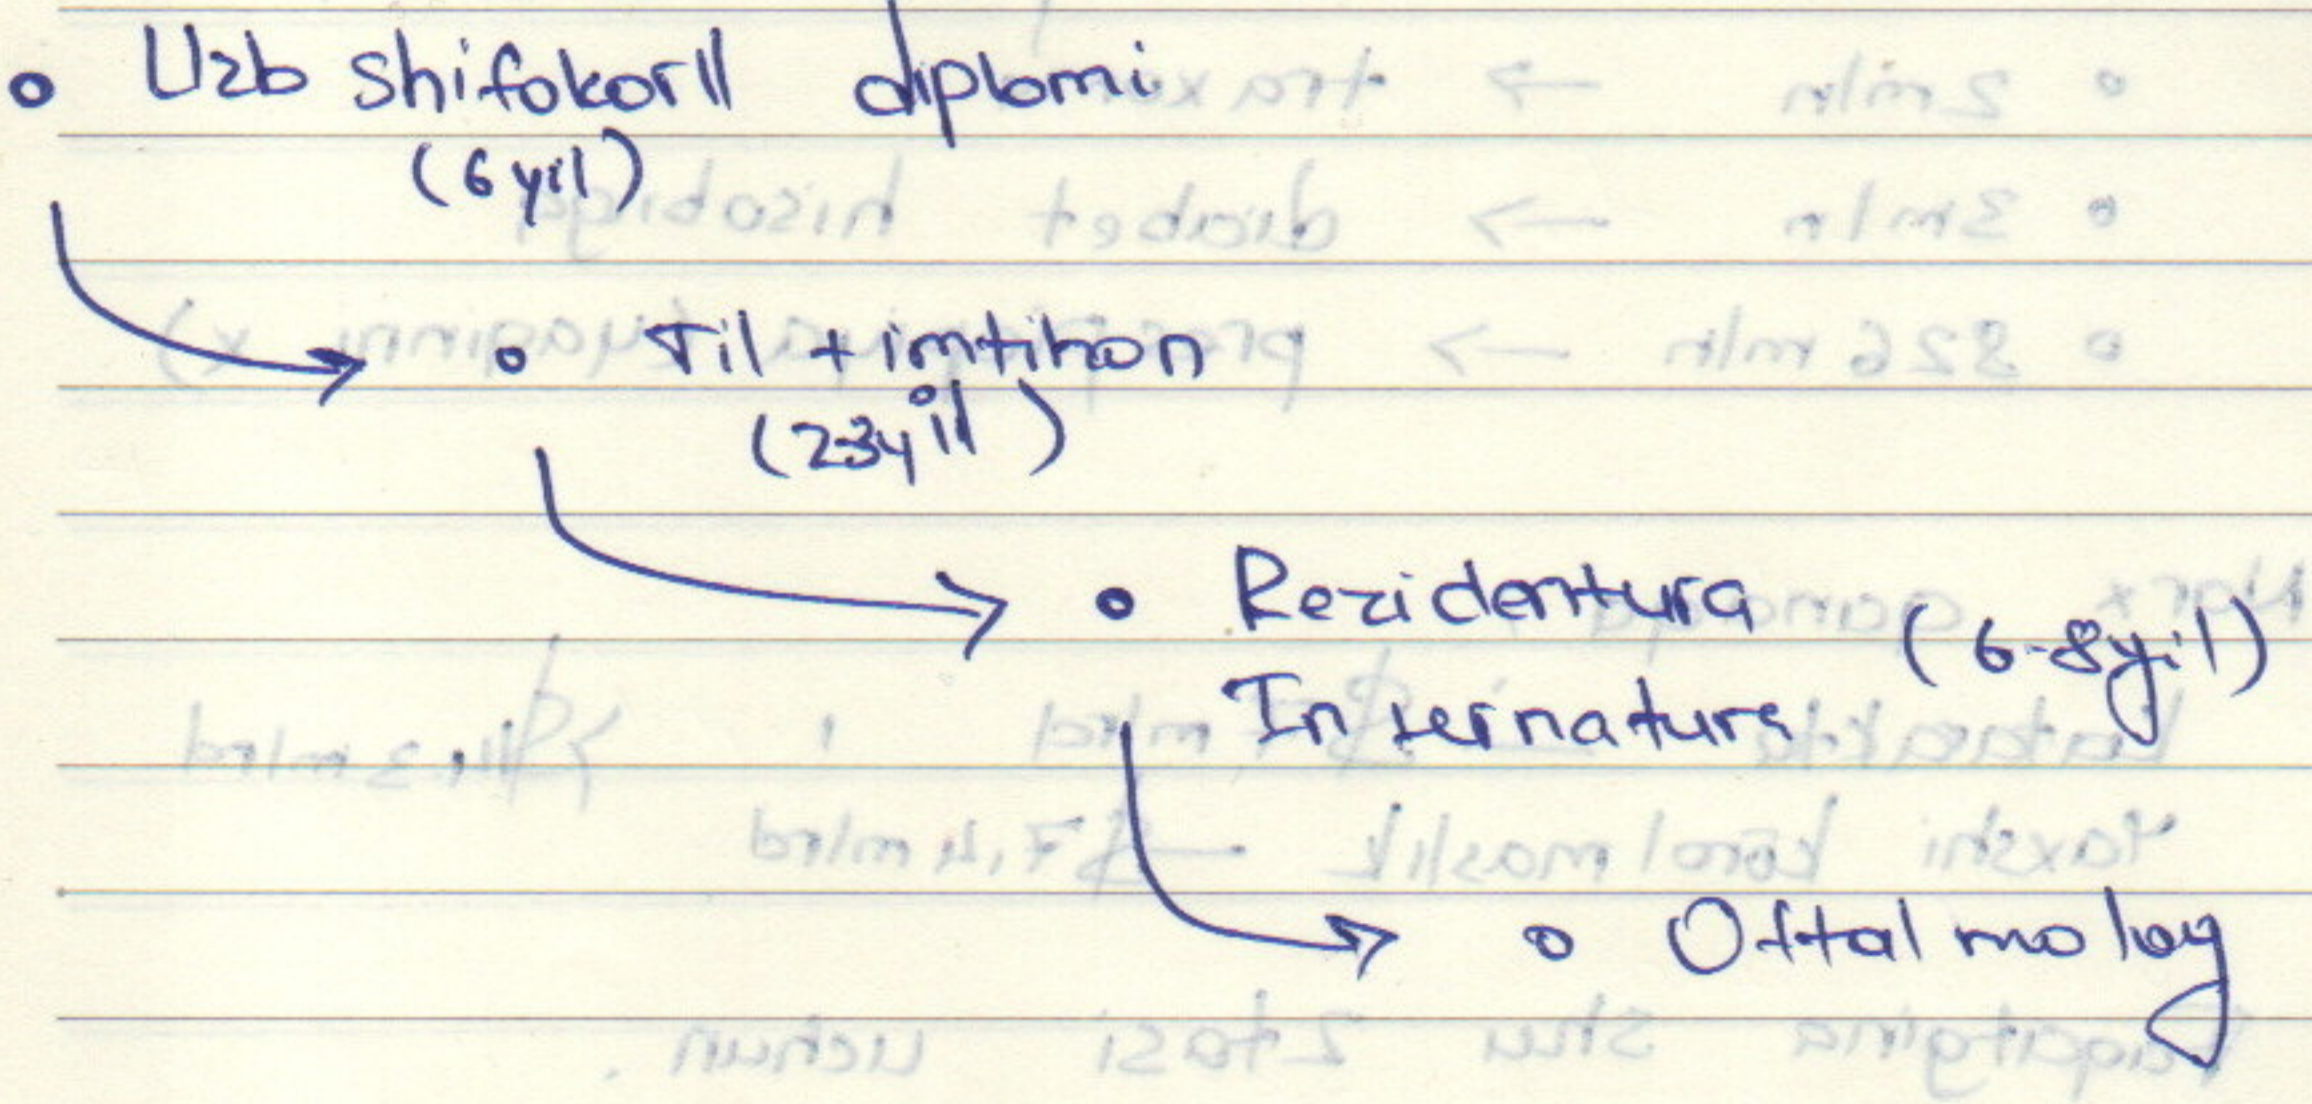 • Uzb shifokorll diplomi
(6 yil)
• Til + imtihon
(2-3yil)
• Rezidentura
(6-8yil)
Internatura
• Oftalmolog